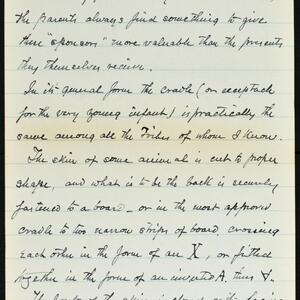 the parents always find something to give
these "sponsors" more valuable than the presents
they themselves receive.
In its general form the cradle (or receptacle
for the very young infant) is practically the
same among all the Tribes of whom I know.
The skin of some animal is cut to proper
shape, and what is to be the back is securely
fastened to a board - or in the most approved
cradle to two narrow strips of board, crossing
each other in the form of an X, or fitted
together in the form of an inverted A, thus ∀.